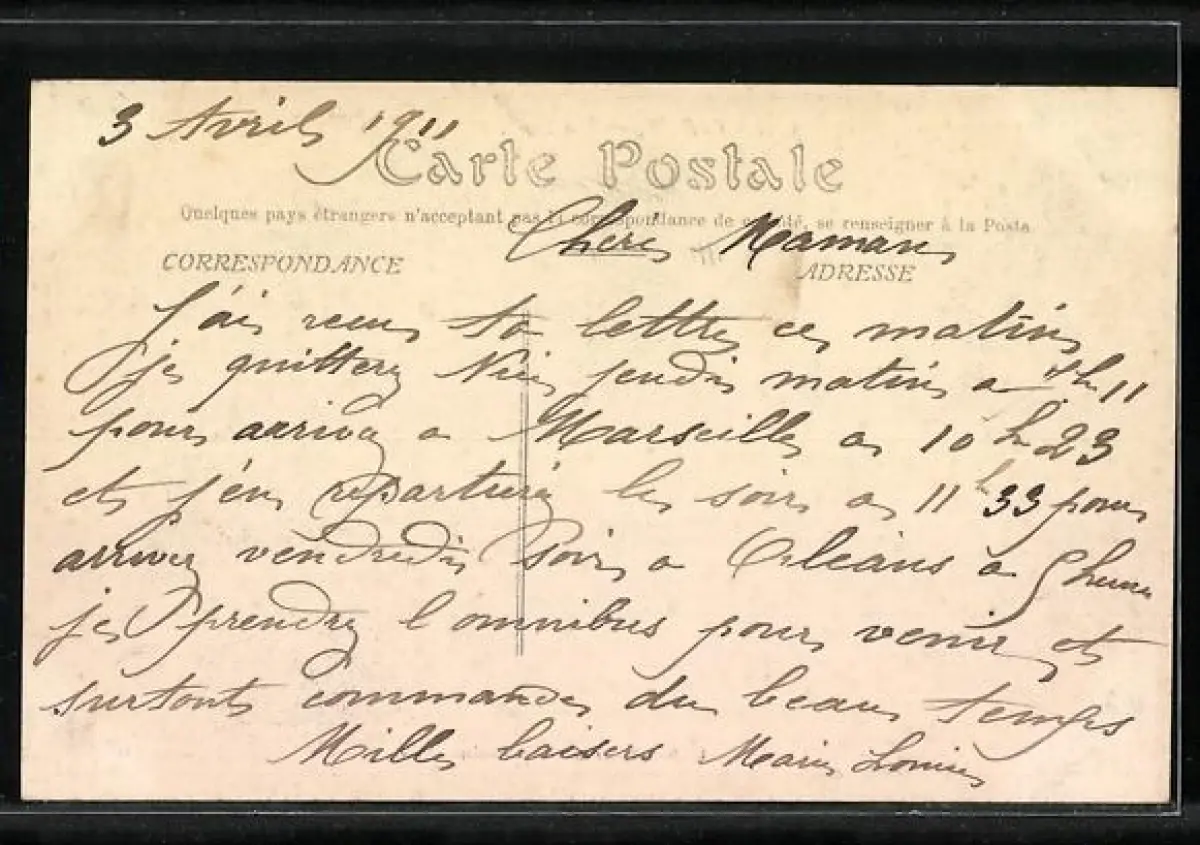 3 Avril 1911
Carte Postale
Quelques pays étrangers n'acceptant pas la correspondance de ce côté, se renseigner à la Poste
Chere Maman
CORRESPONDANCE
ADRESSE
J'ai recu ta lettre ce matin
je quitterai Nice jeudi matin a h 11
pour arriver a Marseille a 10 h 23
et j'en repartirai le soir a 11 h 33 pour
arriver vendredi soir a Orleans a 5 heures
je prendrai l'omnibus pour venir et
surtout commande du beau temps
Mille baisers Marie Louise